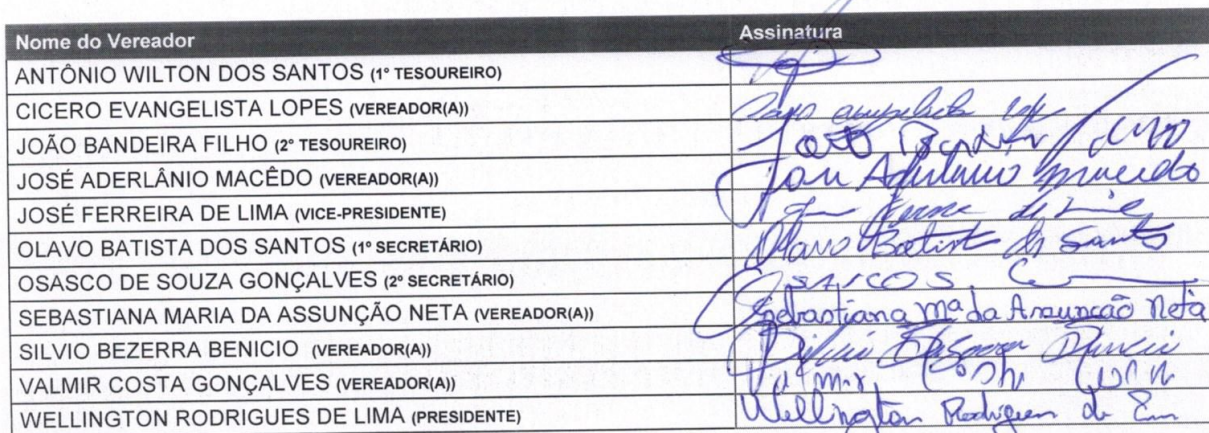 Nome do Vereador Assinatura
ANTÔNIO WILTON DOS SANTOS (1º TESOUREIRO)
CICERO EVANGELISTA LOPES (VEREADOR(A))
JOÃO BANDEIRA FILHO (2º TESOUREIRO) João
JOSÉ ADERLÂNIO MACÊDO (VEREADOR(A)) Macedo
JOSÉ FERREIRA DE LIMA (VICE-PRESIDENTE)
OLAVO BATISTA DOS SANTOS (1º SECRETÁRIO) Olavo Batista dos Santos
OSASCO DE SOUZA GONÇALVES (2º SECRETÁRIO)
SEBASTIANA MARIA DA ASSUNÇÃO NETA (VEREADOR(A)) Sebastiana Mª da Assunção Neta
SILVIO BEZERRA BENICIO (VEREADOR(A))
VALMIR COSTA GONÇALVES (VEREADOR(A)) Valmir
WELLINGTON RODRIGUES DE LIMA (PRESIDENTE) Wellington Rodrigues de